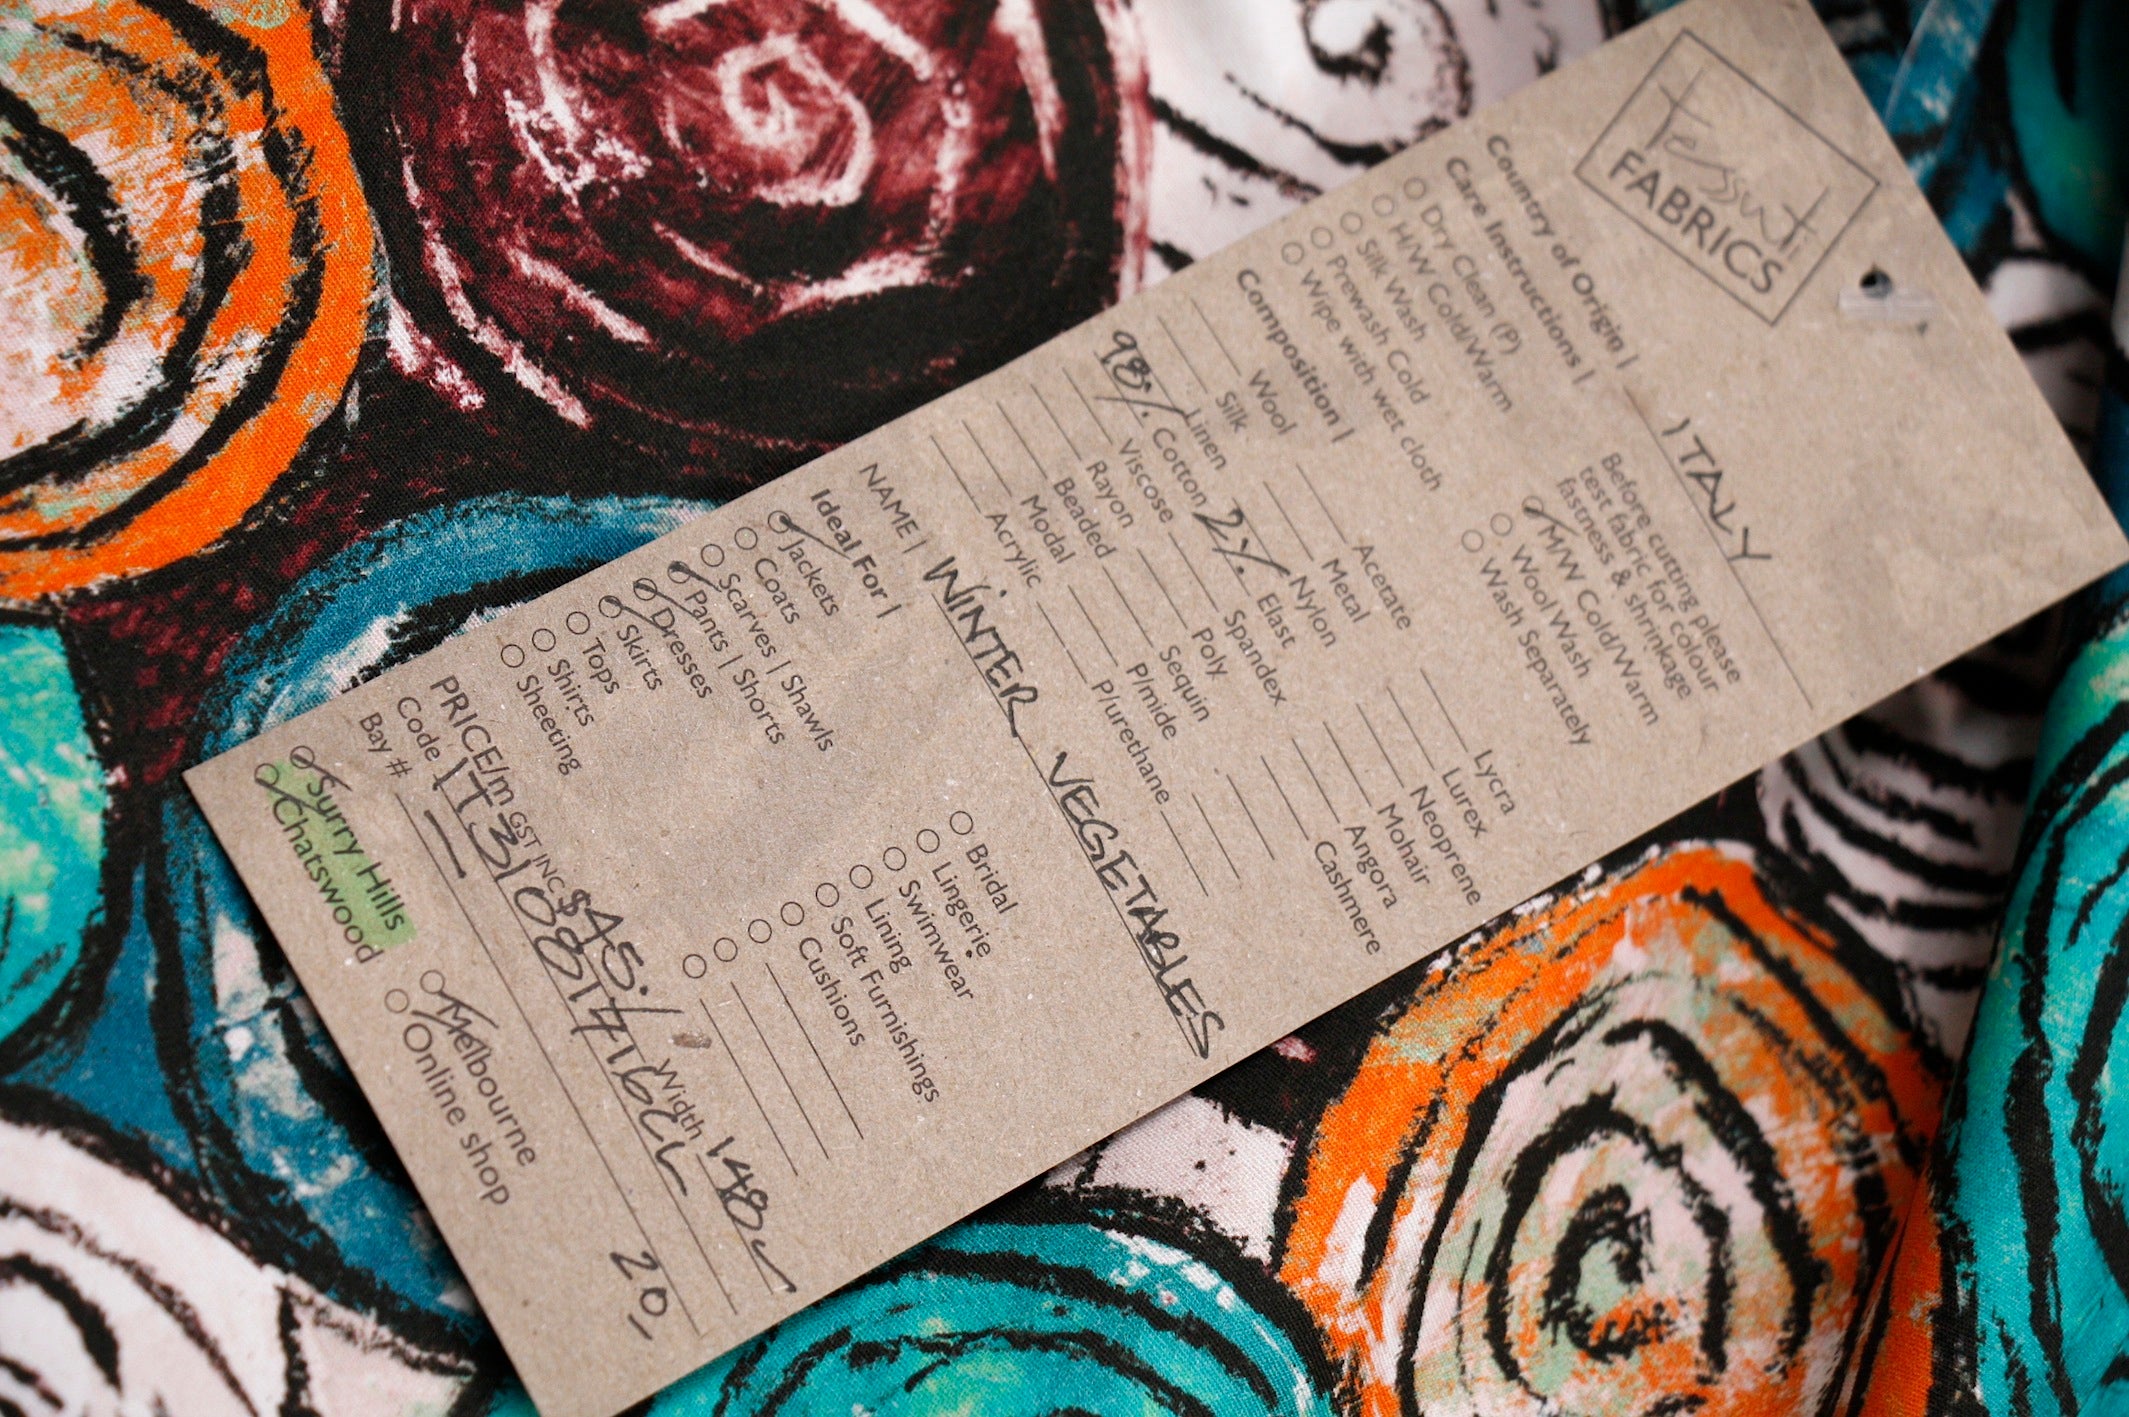 Tessuti
FABRICS
Country of Origin | ITALY
Care Instructions |
Before cutting please
test fabric for colour
fastness & shrinkage
Dry Clean (P)
H/W Cold/Warm
Silk Wash
Prewash Cold
Wipe with wet cloth
M/W Cold/Warm
Wool Wash
Wash Separately
Composition |
Wool Acetate Lycra
Silk Metal Lurex
Linen Nylon Neoprene
98% Cotton 2% Elast Mohair
Viscose Spandex Angora
Rayon Poly Cashmere
Beaded Sequin
Modal P/mide
Acrylic P/urethane
NAME | WINTER VEGETABLES
Ideal For |
Jackets Bridal
Coats Lingerie
Scarves | Shawls Swimwear
Pants | Shorts Lining
Dresses Soft Furnishings
Skirts Cushions
Tops
Shirts
Sheeting
PRICE/m GST INC $45. Width 148
Code
Bay #
20
Surry Hills Melbourne
Chatswood Online shop